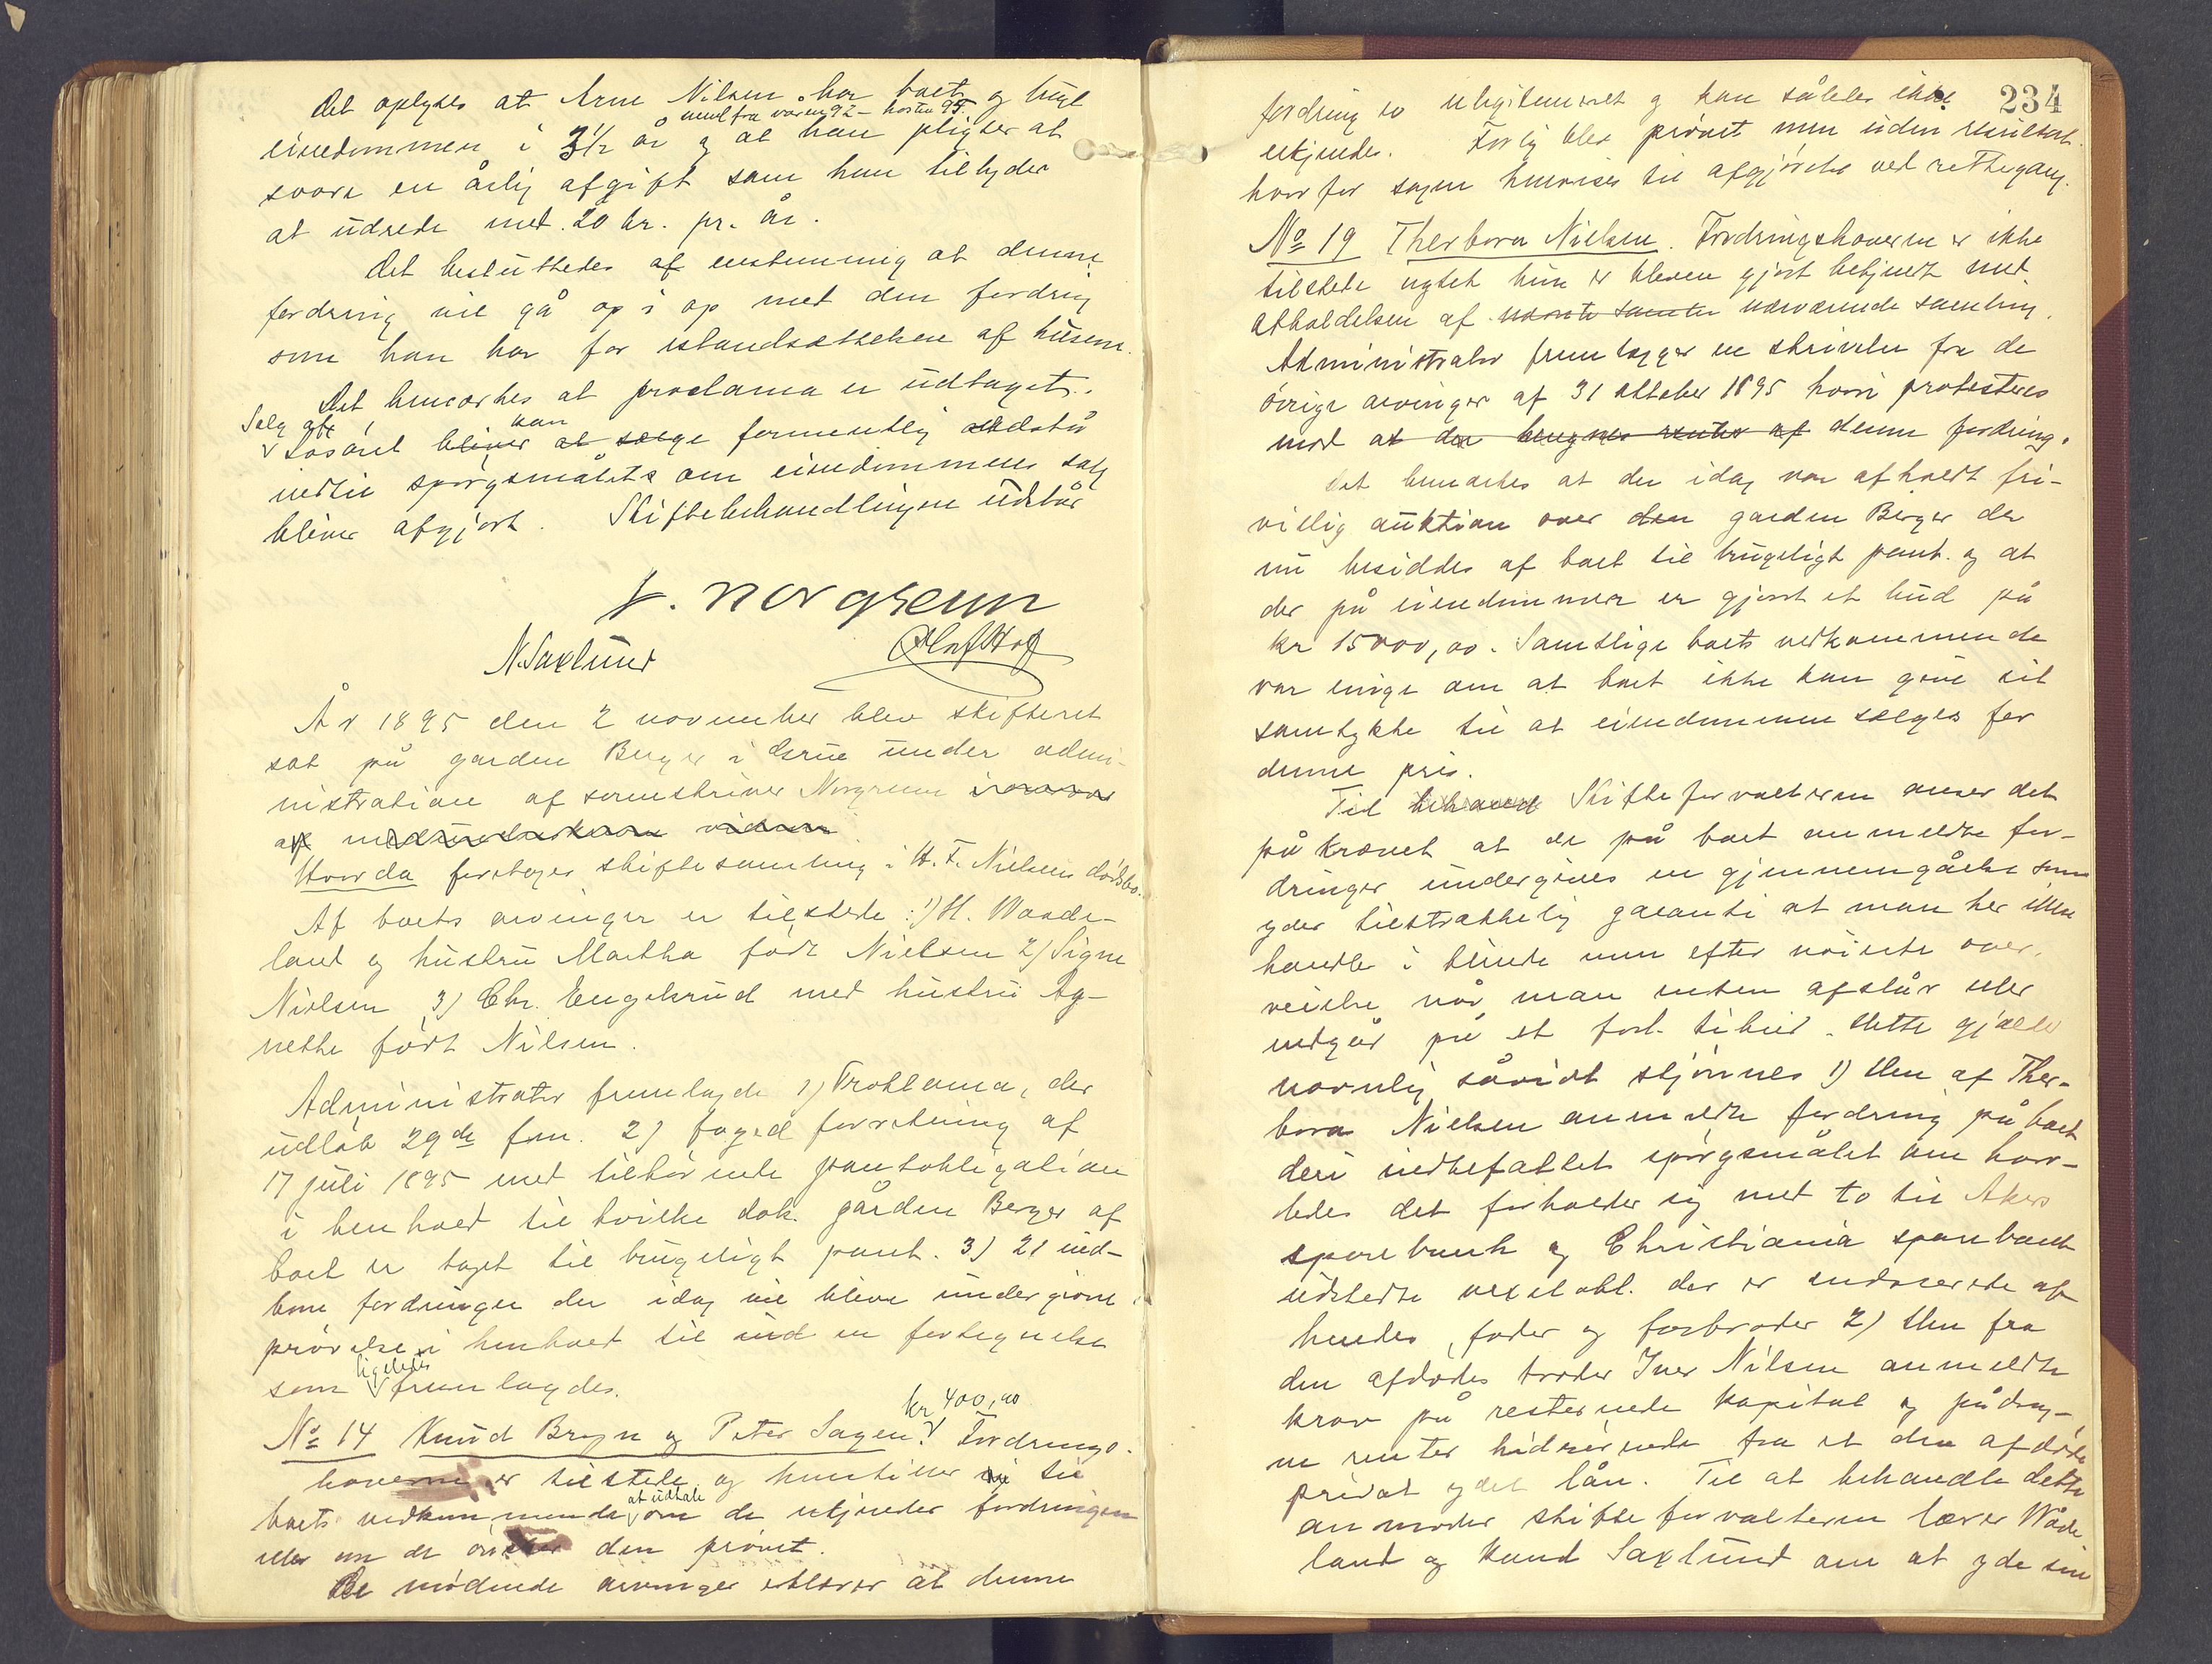 Det oplyses at Arne Nilsen har boet og brugt
neml. fra våren 92 – høsten 95
eiendommen i 3½ år og at han pligter at
svare en årlig afgift som han tilbyder
at udrede med 20 kr. pr. år.
Det besluttedes af enstemmig at denne
fordring vil gå op i op med den fordring
som han har for istandsættelsen af husene.
Det bemærkes at proclama er udtaget.
Salg af kan
Løsøret bliver at sælge formentlig udstå
indtil spørgsmålets om eiendommens salg
bliver afgjort. Skiftebehandlingen udstår
N. Norgrenn
N. Saxlund Olaf Hof
År 1895 den 2 november blev skifteret
sat på garden Berger i Grue under admi-
nistration af sorenskriver Norgrenn
af
Hvorda foretoges skiftesamling i H. F. Nielsens dødsbo.
Af boets arvinger er tilstede: 1) H. Waade-
land og hustru Martha født Nielsen 2) Signe
Nielsen 3) Chr. Engelsrud med hustru Ag-
nethe født Nilsen.
Administrator fremlagde 1) Proklama, der
udløb 29de f.m. 2) foged forretning af
17 juli 1895 med tilhørende pantobligation
i henhold til hvilke dok. gården Berger af
boet er taget til brugeligt pant. 3) 21 ind-
kome fordringer der idag vil blive undergivne
prøvelse i henhold til ind en fortegnelse
ligeledes
som fremlagdes.
kr 400,00
No 14 Knud Bryn og Peter Sagen. Fordrings-
haverne er tilstede og henstiller til
at udtale
boets vedkommende om de erkjender fordringen
eller om de ønsker den prøvet.
De mødende arvinger erklærer at denne
234
fordring er ulegitimeret og kan således ikke
erkjendes. Forlig blev prøvet men uden resultat
hvorfor sagen henvises til afgjørelse ved rettergang.
No 19 Therbora Nielsen. Fordringshaveren er ikke
tilstede uagtet hun er bleven gjort bekjendt med
afholdelsen af nærværende samling.
Administrator fremlægger en skrivelse fra de
øvrige arvinger af 31 oktober 1895 hvori protesteres
mod at der renter af denne fordring.
Det bemærkes at der idag var afholdt fri-
villig auktion over den garden Berger der
nu besiddes af boet til brugeligt pant. og at
der på eiendommen er gjort et bud på
kr 15000,00. Samtlige boets vedkommende
var enige om at boet ikke kan give sit
samtykke til at eiendommen sælges for
denne pris.
Til behand Skifteforvalteren anser det
påkrævet at de på boet anmeldte for-
dringer undergives en gjennemgåelse som
yder tilstrækkelig garanti at man her ikke
handler i blinde men efter nøieste over-
veielse når man enten afslår eller
indgår på et forl. tilbud. Dette gjælder
navnlig såvidt skjønnes 1) den af Ther-
bora Nielsen anmeldte fordring på boet
deri indbefattet spørgsmålet om hvor-
ledes det forholder sig med to til Akers
sparebank og Christiania sparebank
udstedte vexelobl. der er endosserede af
hendes fader og farbroder 2) den fra
den afdødes broder Iver Nilsen anmeldte
krav på resterende kapital og pådrag-
ne renter hidrørende fra et den afdøde
privat ydet lån. Til at behandle dette
anmoder skifteforvalteren lærer Wåde
land og Knud Saxlund om at yde sin